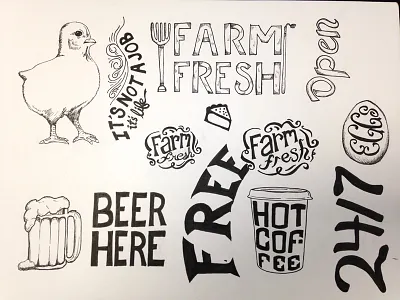 IT'S NOT A JOB
it's life
FARM
FRESH
Open
Farm
fresh
Farm
fresh
EGGS
FREE
BEER
HERE
HOT
COF-
FEE
24/7